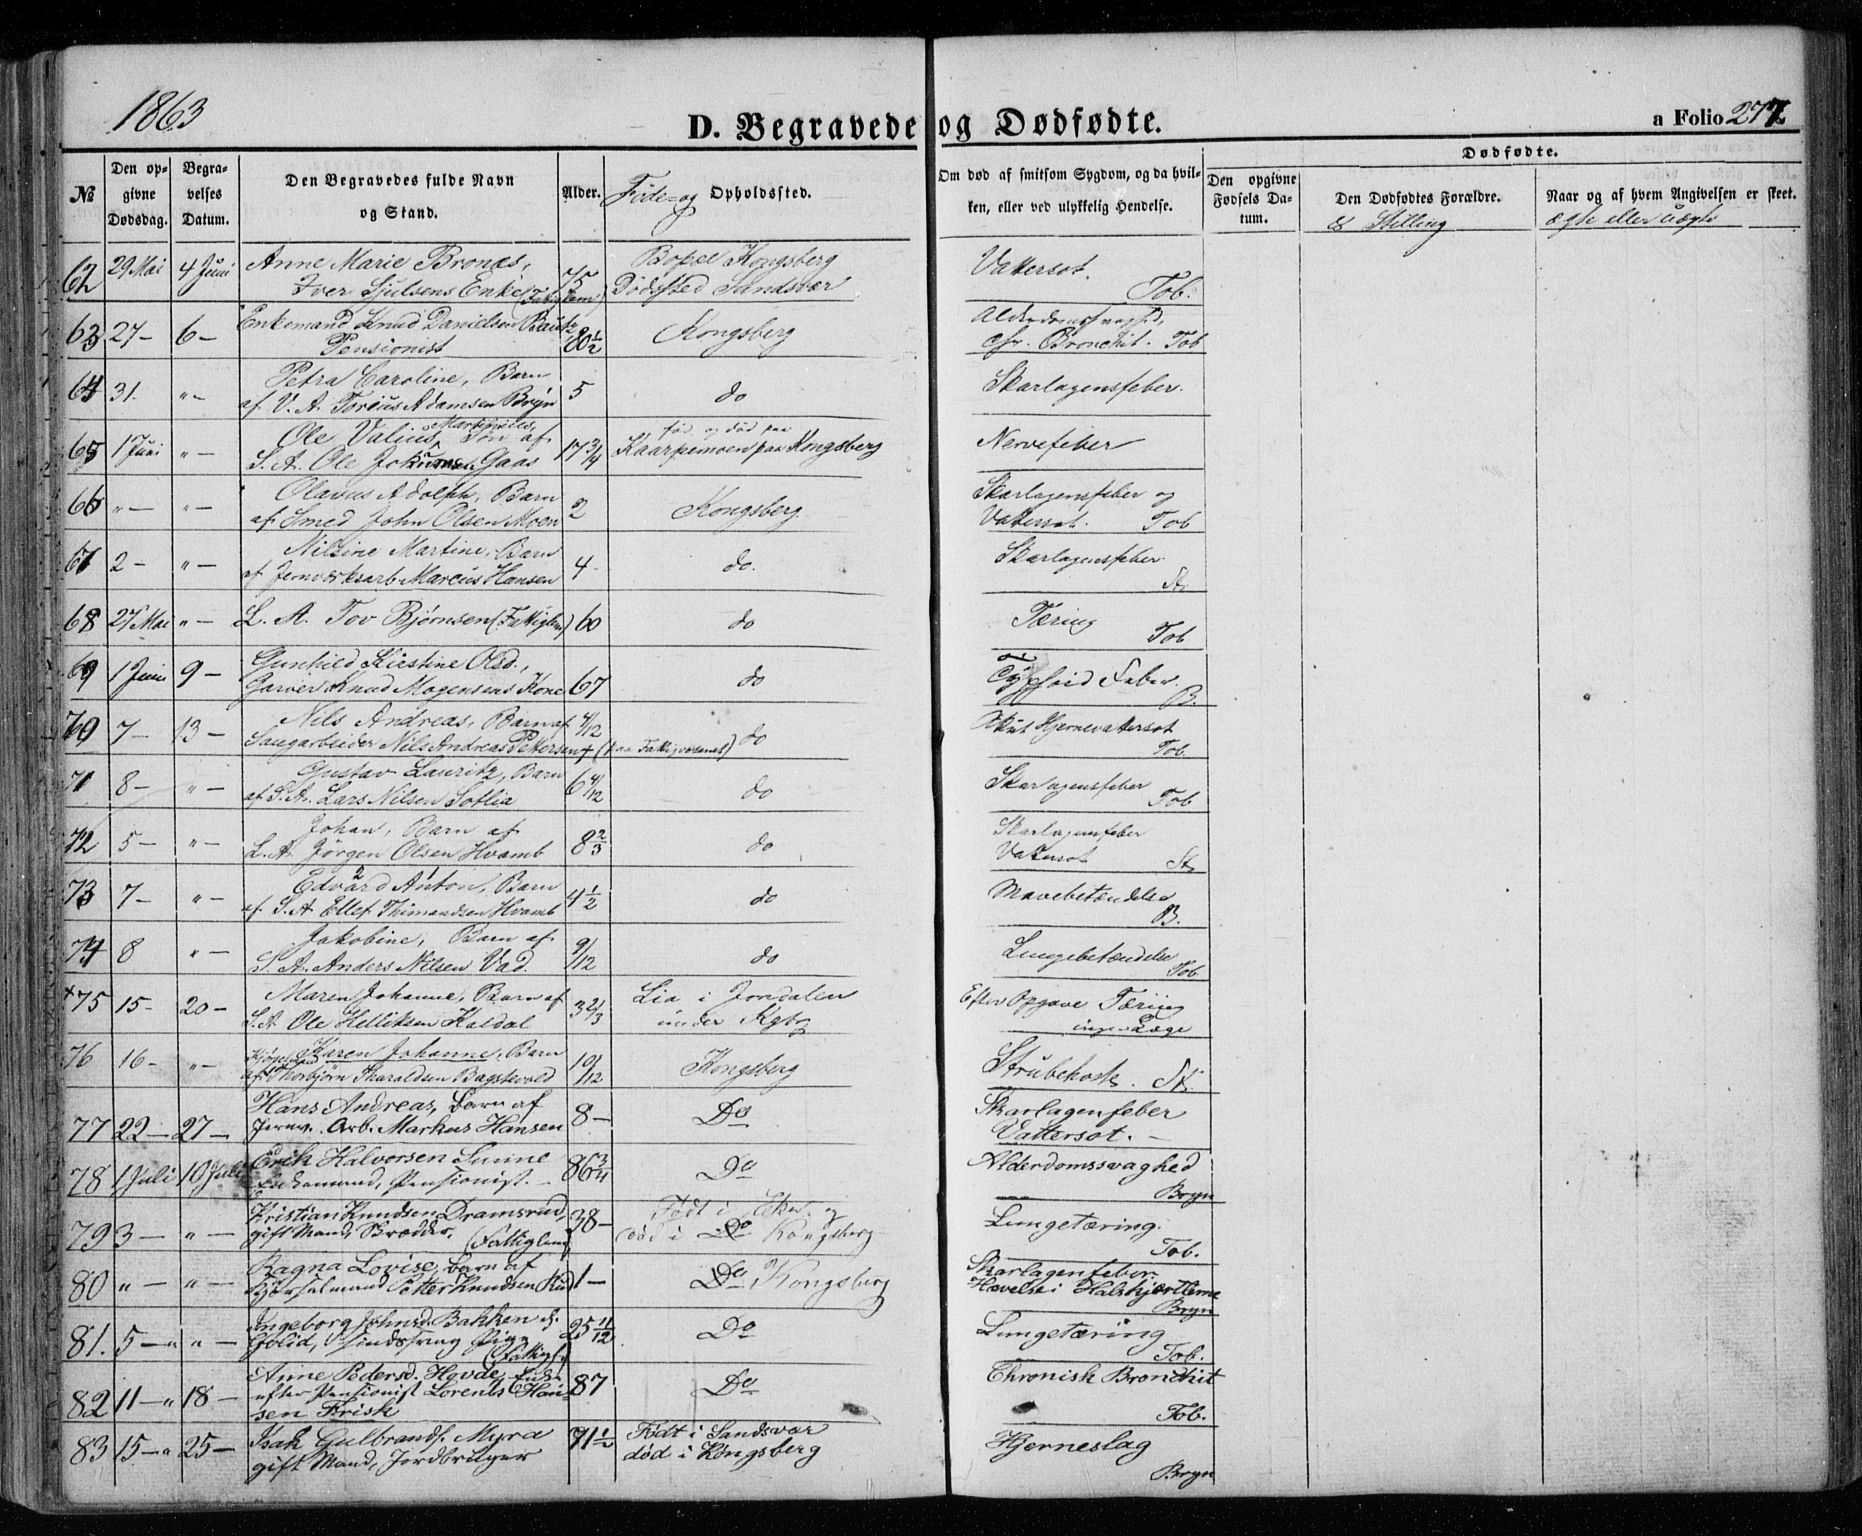 1863
D. Begravede og Dødfødte.
a Folio 277
№ | Den opgivne Dødsdag. | Begravelses Datum. | Den Begravedes fulde Navn og Stand. | Alder. | Føde- og Opholdssted. | Om død af smitsom Sygdom, og da hvilken, eller ved ulykkelig Hendelse. | Dødfødte. | Den opgivne Fødsels Datum. | Den Dødfødtes Forældre. & Stilling | Naar og af hvem Angivelsen er skeet. ægte eller uægte
62 | 29 Mai | 4 Juni | Anne Marie Bronæs, | 75 | Bopæl Kongsberg | Vattersot.
Iver Sjulsens Enke (Fattiglem) | Dødssted Sandsvær | Tob.
63 | 27 – | 6 – | Enkemand Knud Danielsen Bautz | 80½ | Kongsberg | Alderdomssvaghed,
Pensionist | chr. Bronchit. Tob
64 | 31. | " – | Petra Caroline, Barn | 5 | do | Skarlagensfeber.
af V. A. Torius Adamsen Bryn
65 | 1 Juni | " – | Ole Valius Martinius, Søn af | 17¾ | fød og død paa | Nervefeber
S. A. Ole Johnsen Gaas | Kaarpemoen paa Kongsberg
66 | " – | " – | Olavus Adolph, Barn | 2 | Kongsberg. | Skarlagensfeber og
af Smed John Olsen Moen | Vattersot. Tob
67 | 2 – | " – | Nilsine Martine, Barn | 4 – | do. | Skarlagensfeber.
af Jernværksarb Marcus Hansen | St.
68 | 27 Mai | " – | L. A. Tov Bjørnsen (Fattiglem) | 60 | do | Tæring
Tob
69 | 1 Juni | 9 – | Gunhild Kirstine Olsd., | 67 | do | Typhoid Feber.
Garver Knud Mogensens Kone | B.
70 | 7 – | 13 – | Nils Andreas, Barn af | 4/12 | do | Akut Hjernevattersot
Saugarbeider Nils Andreas Pettersen + (paa Fattigvæsenet) | Tob.
71 | 8 – | " – | Gustav Lauritz, Barn | 6 4/12 | do | Skarlagensfeber
af S. A. Lars Nilsen Sotlia | Tob
72 | 5 – | " – | Johan, Barn af | 8⅔ | do | Skarlagensfeber
L. A. Jørgen Olsen Hvamb | Vattersot St.
73 | 7 – | " – | Edvard Anton, Barn | 4½ | do | Mavebetændelse
af S. A Ellef Thimandsen Hvamb | B.
74 | 8 | " – | Jakobine, Barn af | 9/12 | do | Lungebetændelse
S. A. Anders Nilsen Vad. | Tob.
×75 | 15 – | 20 – | Maren Johanne, Barn af | 3⅔ | Lia i Jondalen | Efter Opgave Tæring
S. A. Ole Helliksen Kaldal | under Kgbg | ingen Læge
76 | 16 – | " – | Karen Johanne, Barn | 10/12 | Kongsberg | Strubehoste. St.
af Thorbjørn Tharaldsen Bagstevold
77 | 22 – | 27 – | Hans Andreas, Barn af | 8 – | Do | Skarlagenfeber
Jernv. Arb. Markus Hansen | Vattersot. –
78 | 1 Juli | 10 Juli | Erik Halvorsen Sunne | 86¾ | Do | Alderdomssvaghed
Enkemand, Pensionist. – | Bryn
79 | 3 – | " – | Kristian Knudsen Dramsrud, | 38 – | Født i Eker og | Lungetæring.
gift Mand, Skrædder. (Fattiglem) | død i Do Kongsberg | Tob.
80 | " – | " – | Ragna Lovise, Barn af | 1 – | Do Kongsberg | Skarlagenfeber
Kjørselmand Petter Knudsen Rud | Hævelse i Halskjertlerne
Bryn
81. | 5 – " | " – | Ingeborg Johnsd. Bakken | 25 11/12 | Do | Lungetæring
Golid, Pige (Fattigl.) | Tob.
82 | 11 – " | 18 – | Anne Pedersd. Hovde, Enke | 87 | Do | Chronisk Bronchit
efter Pensionist Lorents Han-
sen Frisk | Tob.
83 | 15 – " | 25 – | Isak Gulbrands. Myra | 71½ | Født i Sandsvær | Hjerneslag
gift Mand, Jordbruger | død i Kongsberg | Bryn